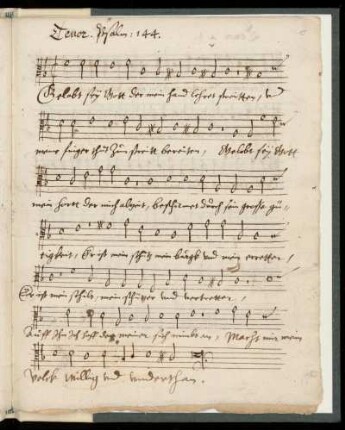 Tenor. Psalm: 144.
Gelobt sey Gott der mein hand lehret streitten, vnd
meine finger thut zum streitt bereiten, Gelobt sey Gott
mein hortt der mich alzeit, beschirmet durch sein grosse gü-
tigkeit, Er ist mein schutz mein burgk vnd mein erretter,
Er ist mein schildt, mein schützer vnd vertretter,
Auff Ihn ich hoff der meiner sich nimbt an, Macht mir mein
Volck willig vnd vnderthan.